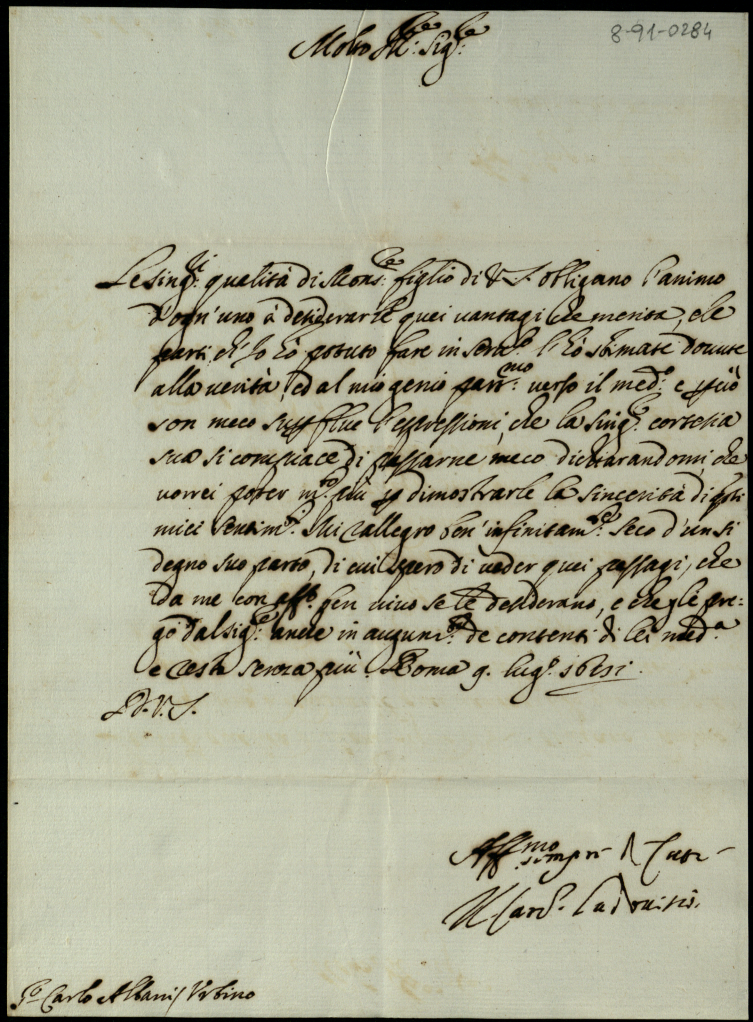 8-91-0284
Molto Ill:re Sig:re
Le sing:ri qualità di Mons:re figlio di V.S. obligano l'animo
d'ogn'uno à desiderarle quei vantagi che merita, e le
parti, ch'Io hò potuto fare in l'hò stimate dovute
alla verità, ed al mio genio part:mo verso il med:o e però
son meco superflue l'espressioni, che la sing:re cortesia
sua si compiace di passarne meco dichiarandomi, che
vorrei poter m:to più p dimostrarle la sincerità di q:sti
miei sentim:ti. Mi rallegro ben' infinitam:te seco d'un sì
degno suo parto, di cui spero di veder quei passagi, che
da me con aff:o ben vivo se le desiderano, e che gli pre=
gò dal Sig:re anche in augum:to de contenti di lei med:a
e resto senza più. Roma 9. lug:o
D.V.S.
Aff:mo sempre
Il Card:
S:r Carlo Albani / Urbino